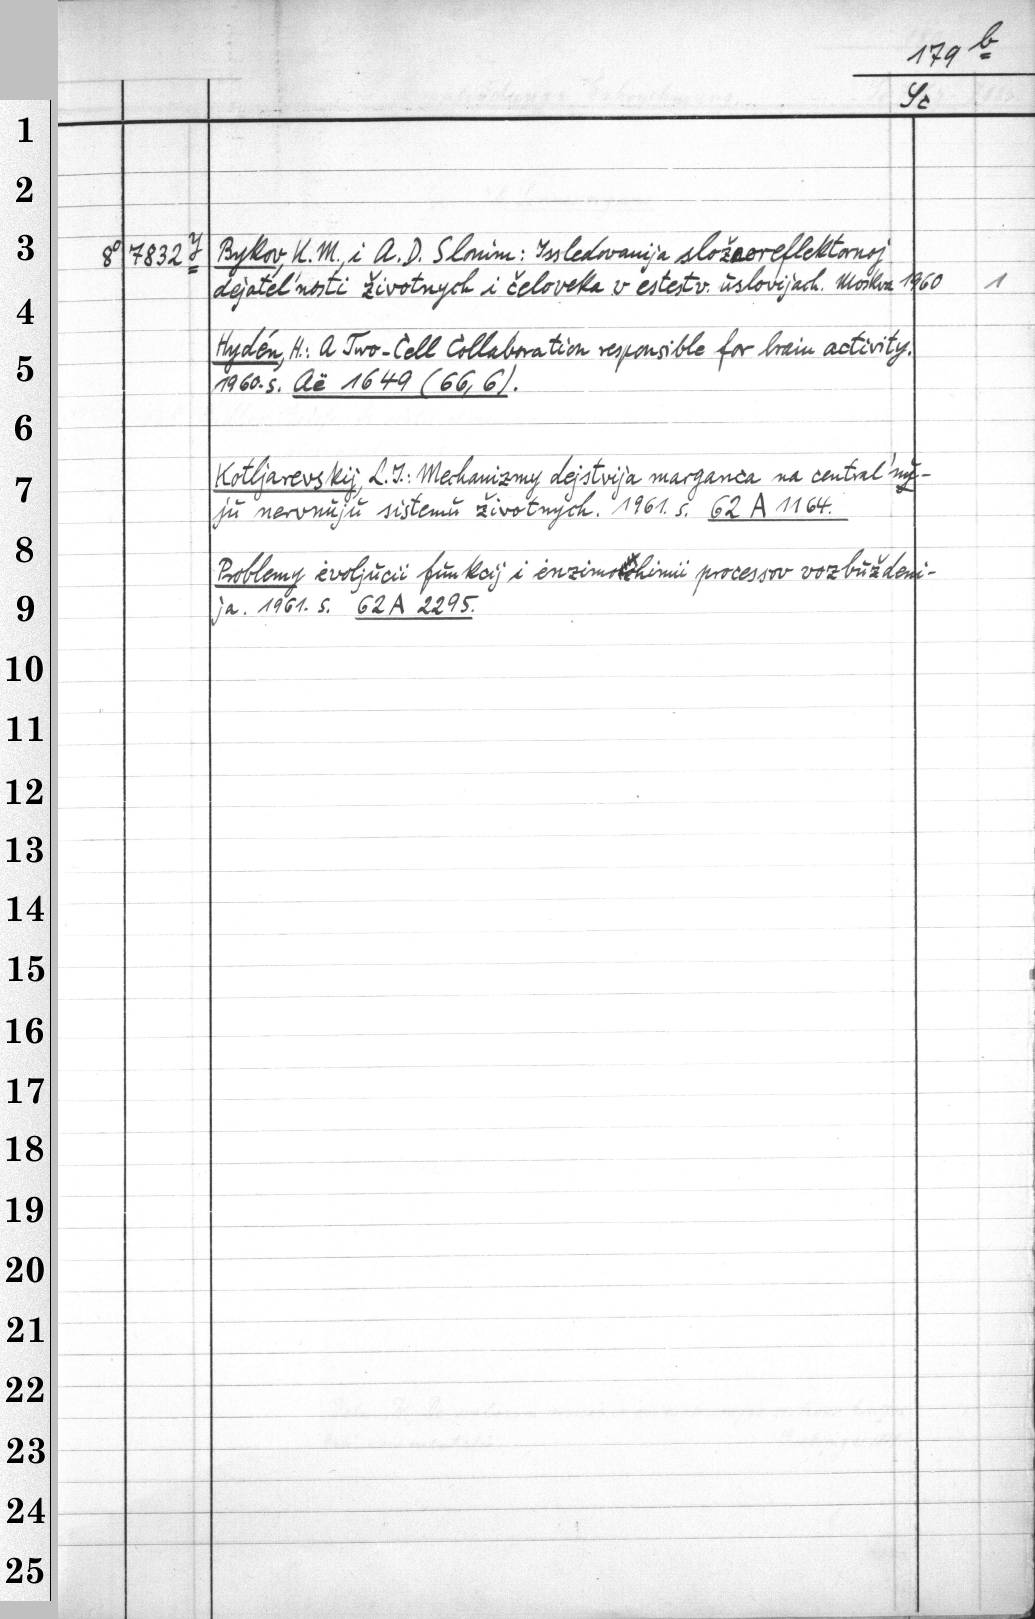 179 b
Sc
1
2
3
8° 7832 y Bykov, K. M., i A. D. Slonim: Issledovanija složnoreflektornoj
dejatel'nosti životnych i čeloveka v estestv. uslovijach. Moskva 1960 1
4
Hydén, H.: A Two-Cell Collaboration responsible for brain activity.
5
1960. s. Aë 1649 (66, 6).
6
7
Kotljarevskij, L. I.: Mechanizmy dejstvija marganca na central'nu-
ju nervnuju sistemu životnych. 1961. s. 62 A 1164.
8
Problemy evoljucii funkcij i enzimochimii processov vozbuždeni-
9
ja. 1961. s. 62 A 2295.
10
11
12
13
14
15
16
17
18
19
20
21
22
23
24
25